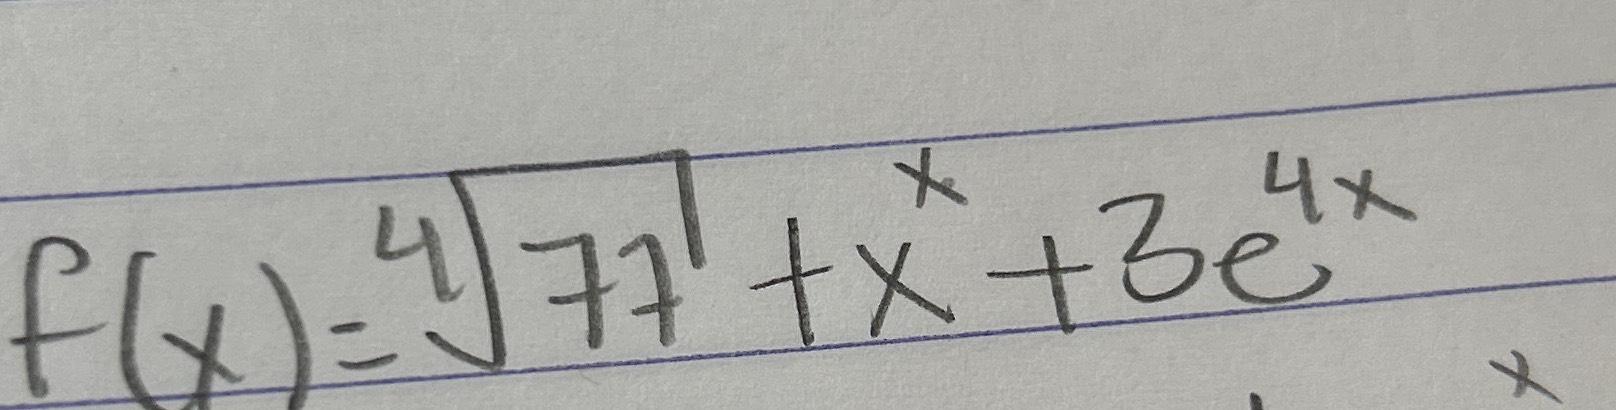 f(x)=⁴√77 + xˣ + 3e⁴ˣ
x